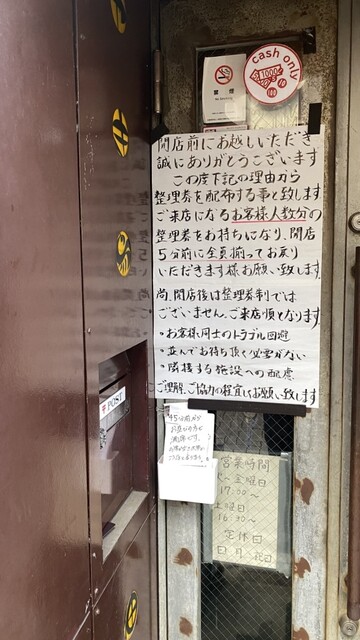 cash only
1000
100
禁煙
開店前にお越しいただき
誠にありがとうございます
この度下記の理由から
整理券を配布する事と致します
ご来店になるお客様人数分の
整理券をお持ちになり、開店
5分前に全員揃ってお戻り
いただきます様お願い致します
尚、開店後は整理券制では
ございません。ご来店順となります
・お客様同士のトラブル回避
・並んでお待ち頂く必要がない
・隣接する施設への配慮
ご理解、ご協力の程宜しくお願い致します
〒POST
営業時間
火～金曜日
17:00～
土曜日
16:30～
定休日
日 月 祝日